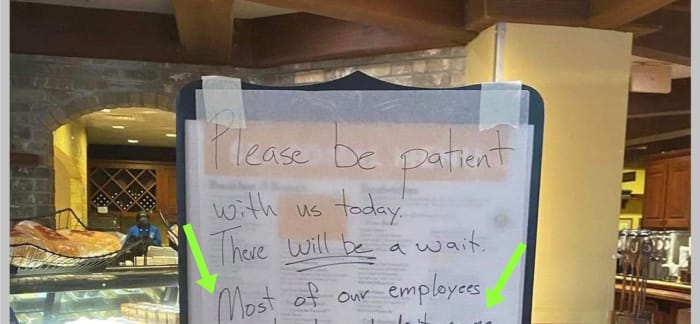 Please be patient
with us today.
There will be a wait.
Most of our employees